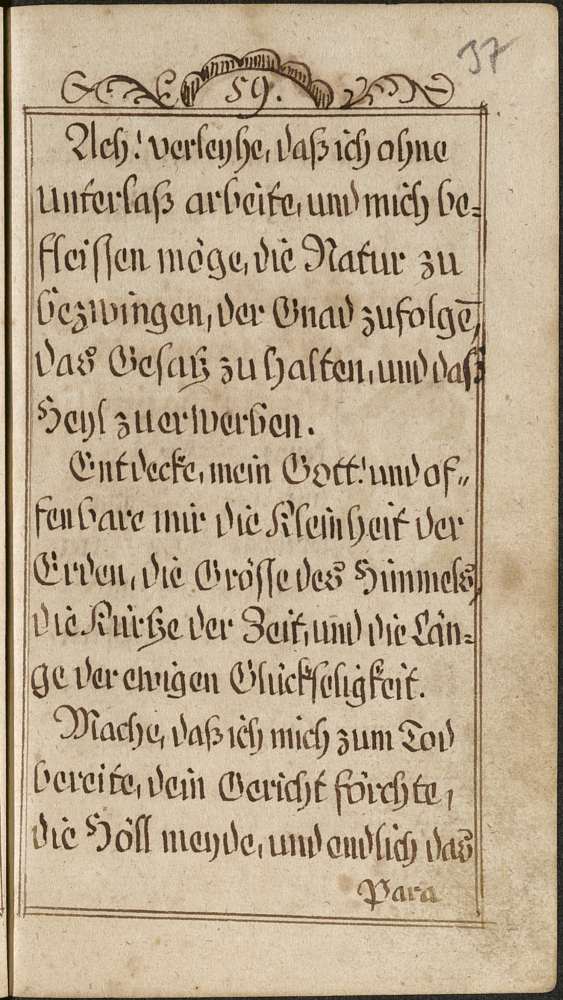 37
59.
Ach! verleyhe, daß ich ohne
unterlaß arbeite, und mich be=
fleissen möge, die Natur zu
bezwingen, der Gnad zufolgē,
das Gesatz zu halten, und daß
Heyl zuerwerben.
Entdecke, mein Gott! und of„
fenbare mir die Kleinheit der
Erden, die Grösse des Himmels,
die Kürtze der Zeit, und die Län=
ge der ewigen Glückseligkeit.
Mache, daß ich mich zum Tod
bereite, dein Gericht förchte,
die Höll meyde, und endlich das
Para